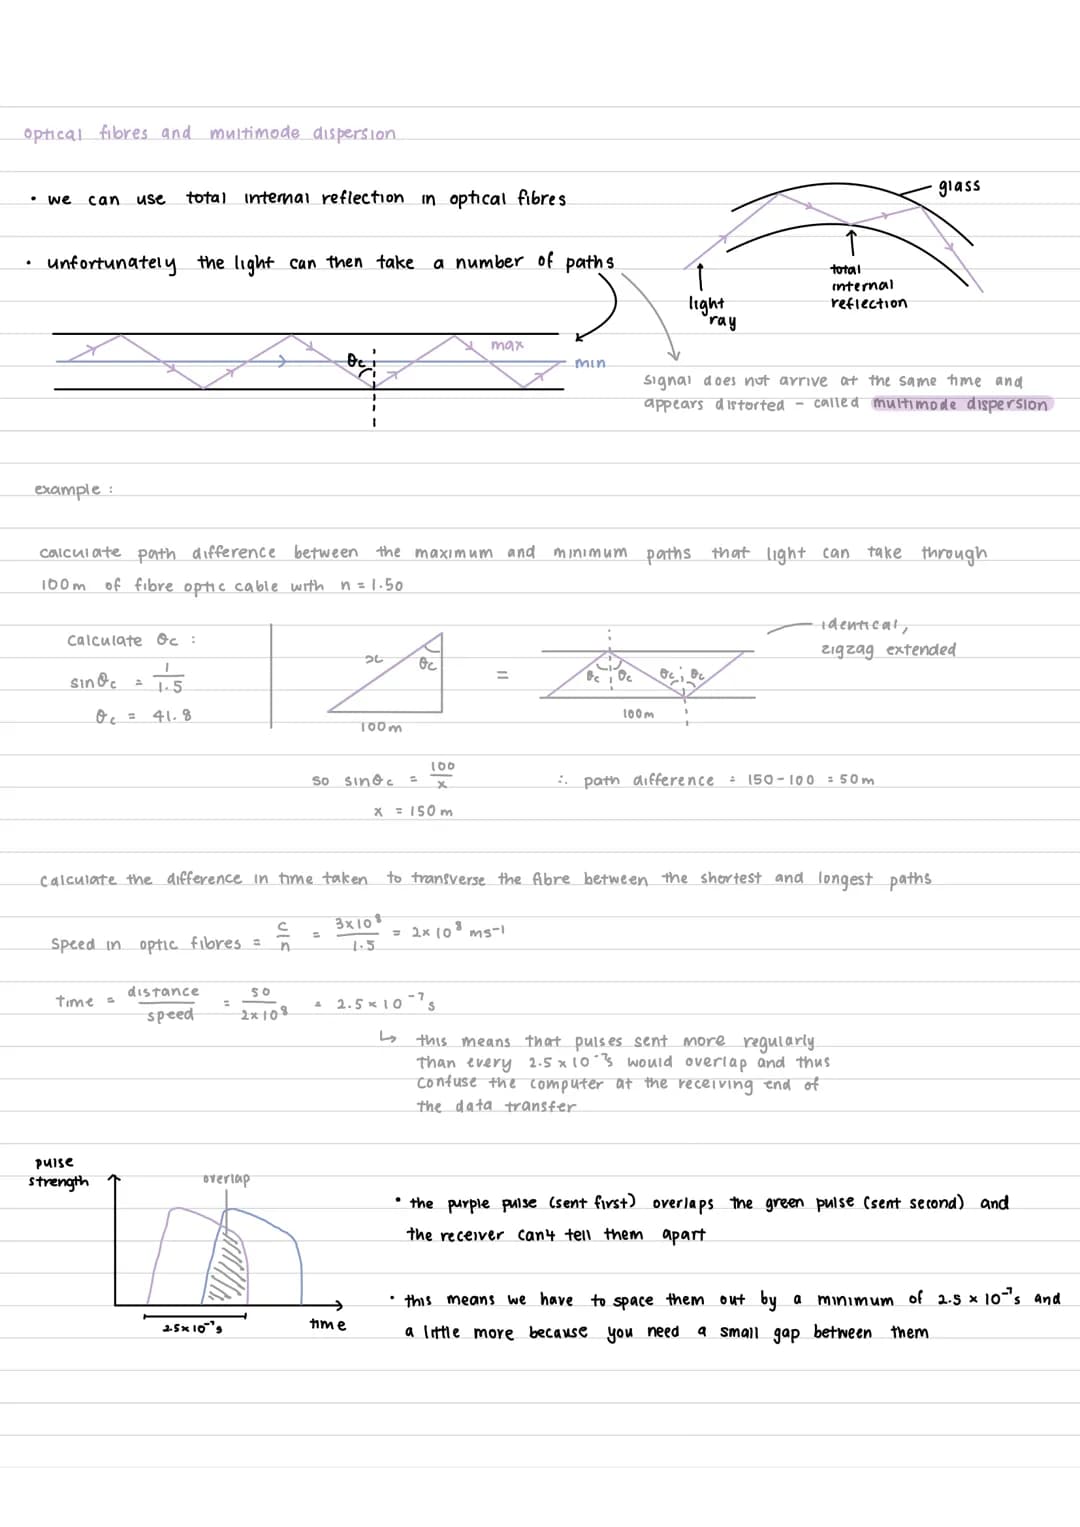 optical fibres and multimode dispersion
• we can use total internal reflection in optical fibres
glass
• unfortunately the light can then take a number of paths
total
internal
reflection
light
ray
max
θc
min
signal does not arrive at the same time and
appears distorted - called multimode dispersion
example :
calculate path difference between the maximum and minimum paths that light can take through
100m of fibre optic cable with n = 1.50
calculate θc :
sinθc = 1/1.5
θc = 41.8
x
θc
100m
=
θc θc θc θc
100m
identical,
zigzag extended
so sinθc = 100/x
x = 150 m
∴ path difference = 150-100 = 50m
calculate the difference in time taken to transverse the fibre between the shortest and longest paths
speed in optic fibres = c/n = 3×10⁸/1.5 = 2×10⁸ ms⁻¹
time = distance/speed = 50/2×10⁸ = 2.5×10⁻⁷s
↳ this means that pulses sent more regularly
than every 2.5×10⁻⁷s would overlap and thus
confuse the computer at the receiving end of
the data transfer
pulse
strength
overlap
2.5×10⁻⁷s
time
• the purple pulse (sent first) overlaps the green pulse (sent second) and
the receiver can't tell them apart
• this means we have to space them out by a minimum of 2.5 × 10⁻⁷s and
a little more because you need a small gap between them